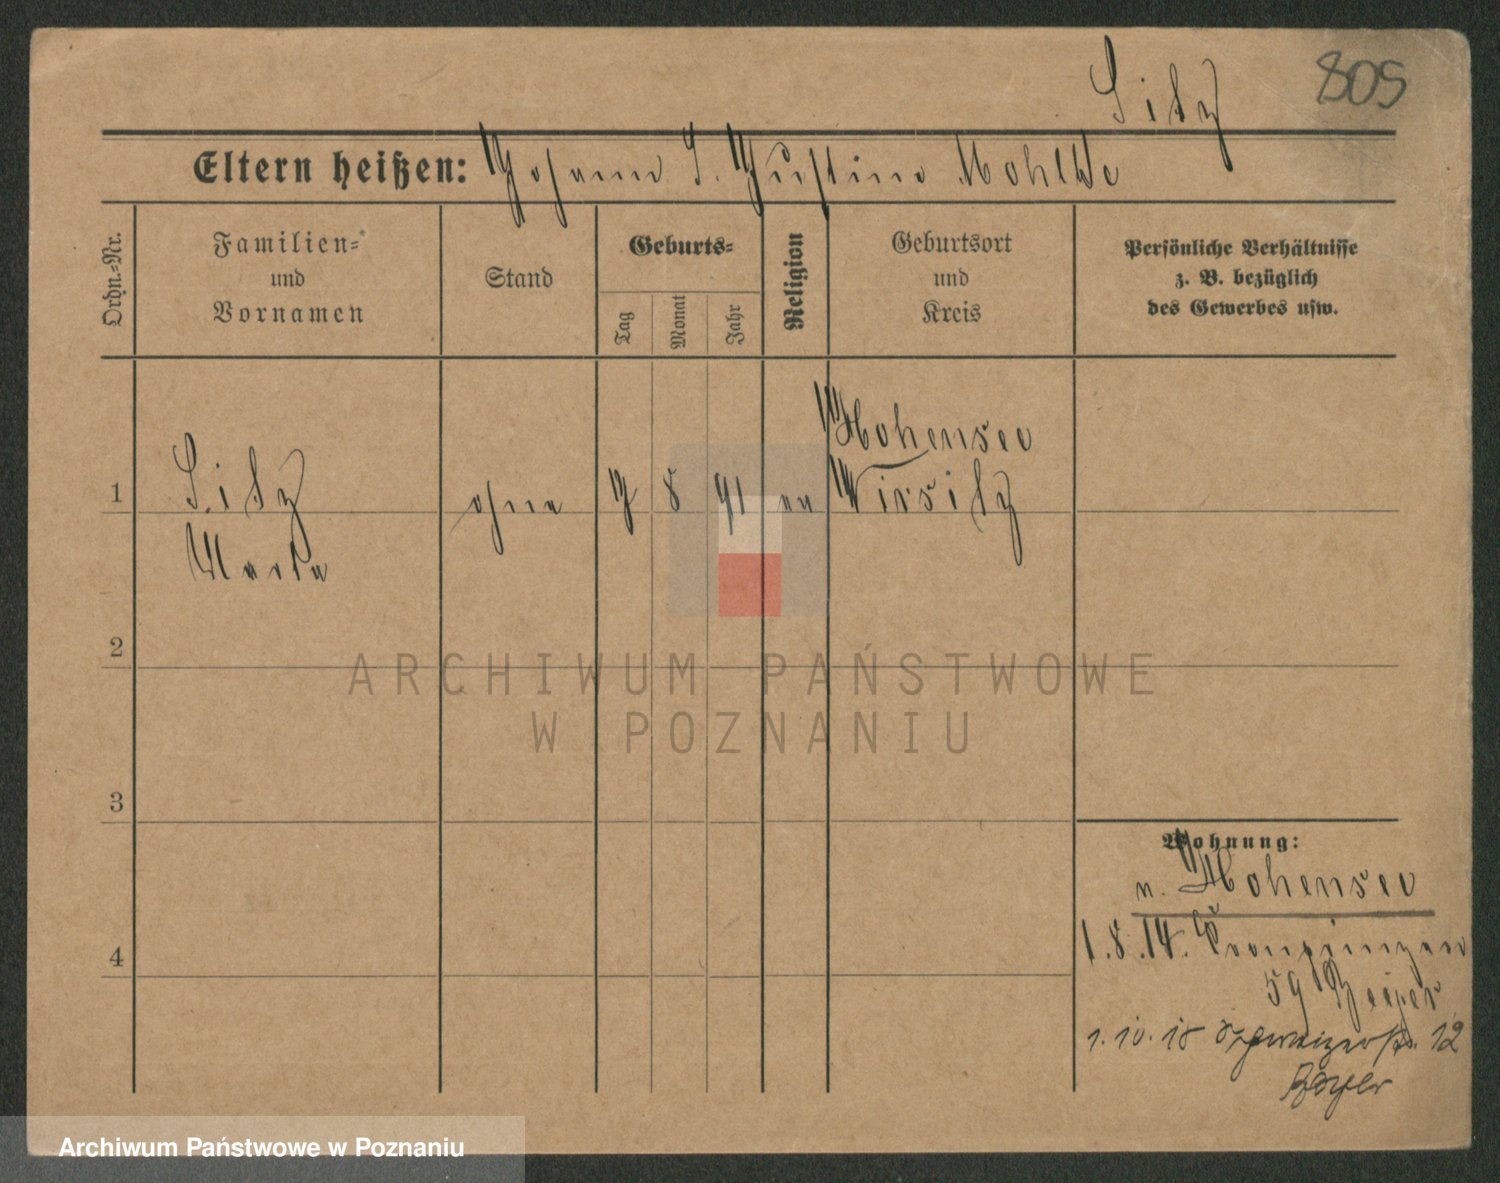 Sitz
805
Eltern heißen: Johann S. Justine Mohlke
Ordn.-Nr.
Familien-
und
Vornamen
Stand
Geburts-
Tag
Monat
Jahr
Religion
Geburtsort
und
Kreis
Persönliche Verhältnisse
z. B. bezüglich
des Gewerbes usw.
1
Sitz
Marta
ohne
7
8
91
ev
Hohensee
Wirsitz
2
3
4
Wohnung:
n. Hohensee
1.8.14. Kronprinzen
59 Beyer
1.10.18 12
Beyer
ARCHIWUM PAŃSTWOWE
W POZNANIU
Archiwum Państwowe w Poznaniu